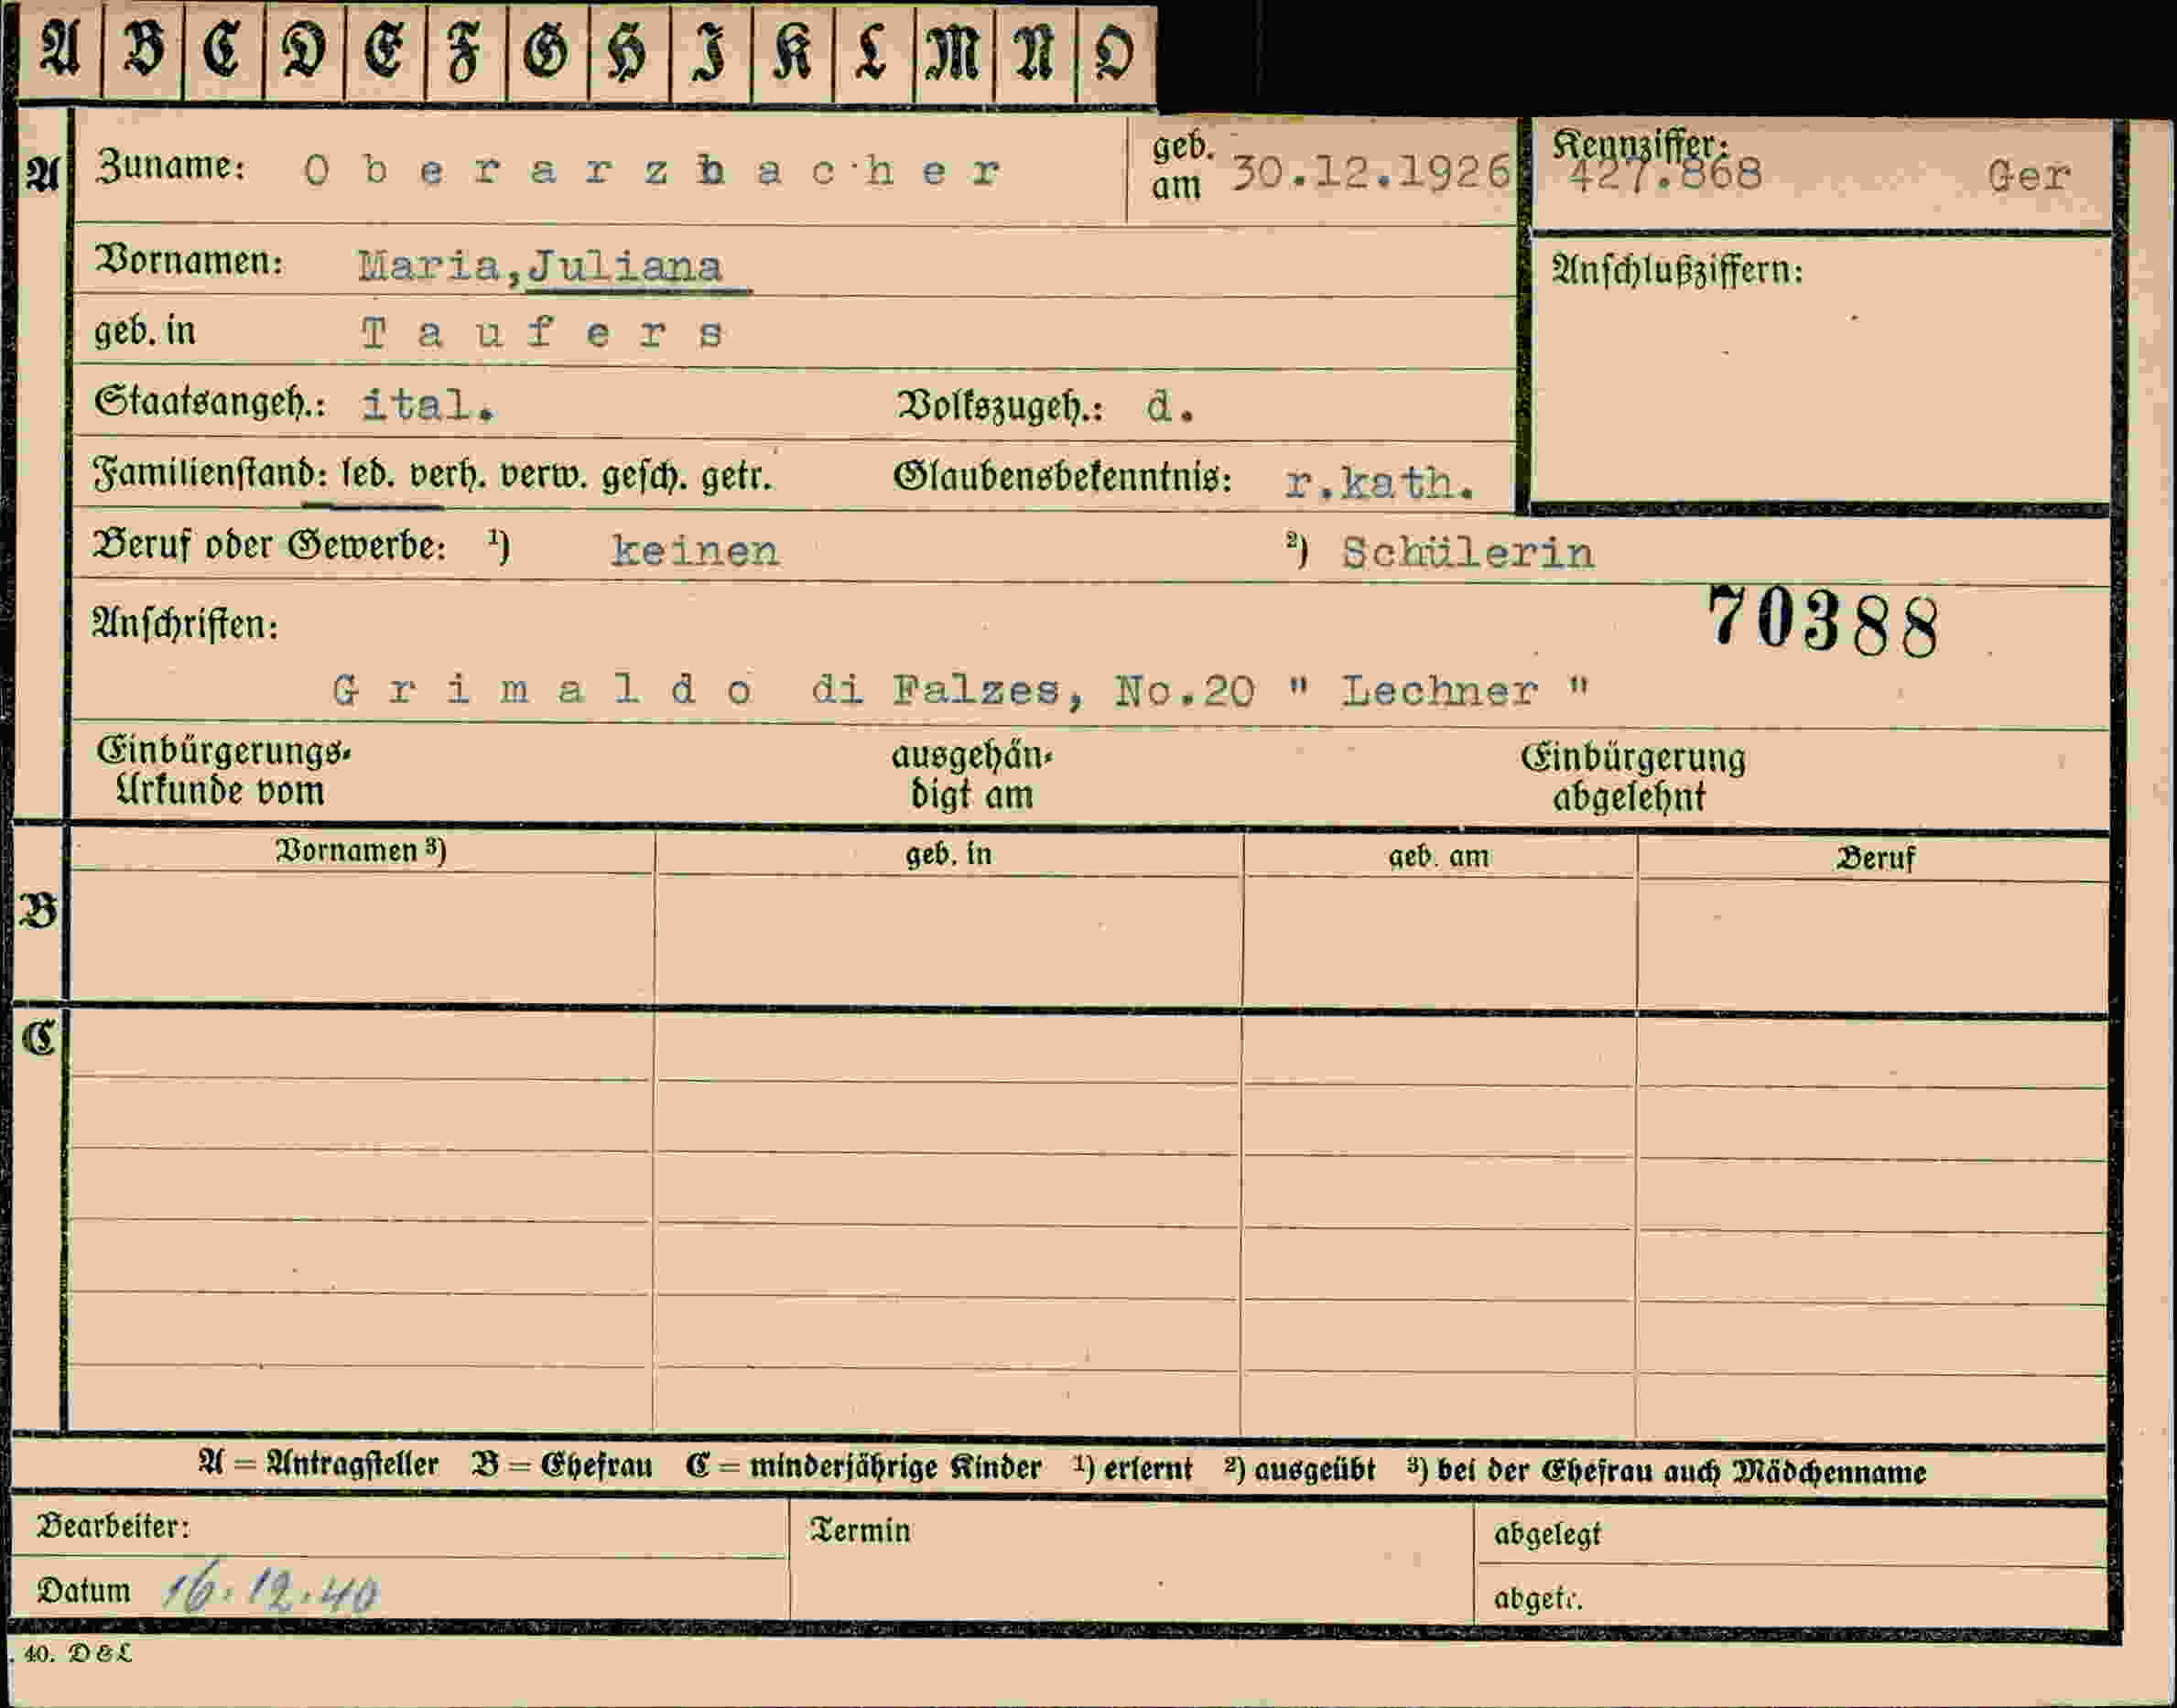 A B C D E F G H I K L M N O
A Zuname: Oberarzbacher geb. am 30.12.1926 Kennziffer: 427.868 Ger
Vornamen: Maria,Juliana Anschlußziffern:
geb. in Taufers
Staatsangeh.: ital. Volkszugeh.: d.
Familienstand: led. verh. verw. gesch. getr. Glaubensbekenntnis: r.kath.
Beruf oder Gewerbe: ¹) keinen ²) Schülerin
70388
Anschriften:
Grimaldo di Falzes, No.20 " Lechner "
Einbürgerungs- Urkunde vom ausgehän- digt am Einbürgerung abgelehnt
Vornamen ³) geb. in geb. am Beruf
B
C
A = Antragsteller B = Ehefrau C = minderjährige Kinder ¹) erlernt ²) ausgeübt ³) bei der Ehefrau auch Mädchenname
Bearbeiter: Termin abgelegt
Datum 16.12.40 abgetr.
40. D & L